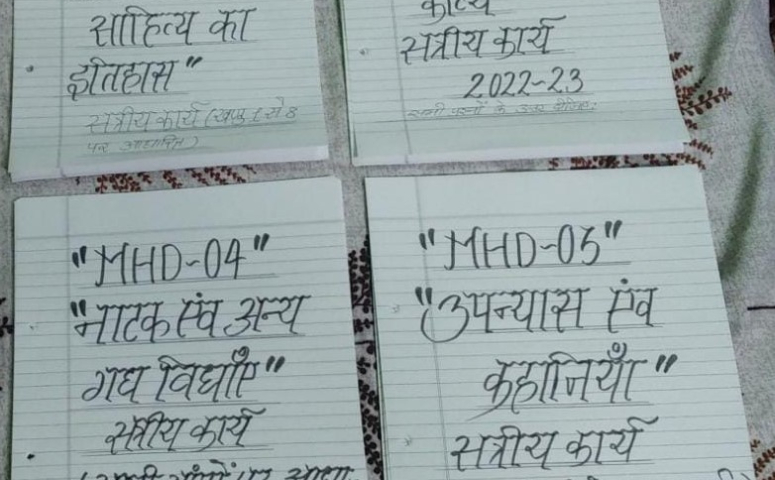 साहित्य का
इतिहास"
सत्रीय कार्य (खण्ड 1 से 8
पर आधारित)
काव्य
सत्रीय कार्य
2022-23
सभी प्रश्नों के उत्तर दीजिए:
"MHD-04"
"नाटक एंव अन्य
गद्य विधाएँ"
सत्रीय कार्य
"MHD-03"
"उपन्यास एंव
कहानियाँ"
सत्रीय कार्य